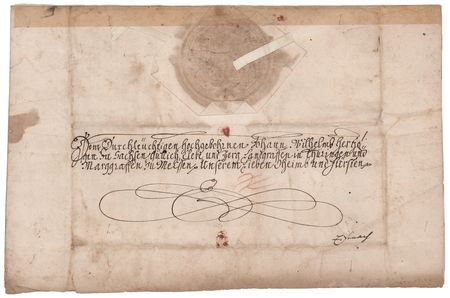 Dem Durchleüchtigen Hochgebohrnen Johann Wilhelm Hertzo
gen Zu Sachsen Jülich Cleve und Berg Landgraffen in Thüringen und
Marggraffen Zu Meißen. Unserem Lieben Oheimb und Fürsten